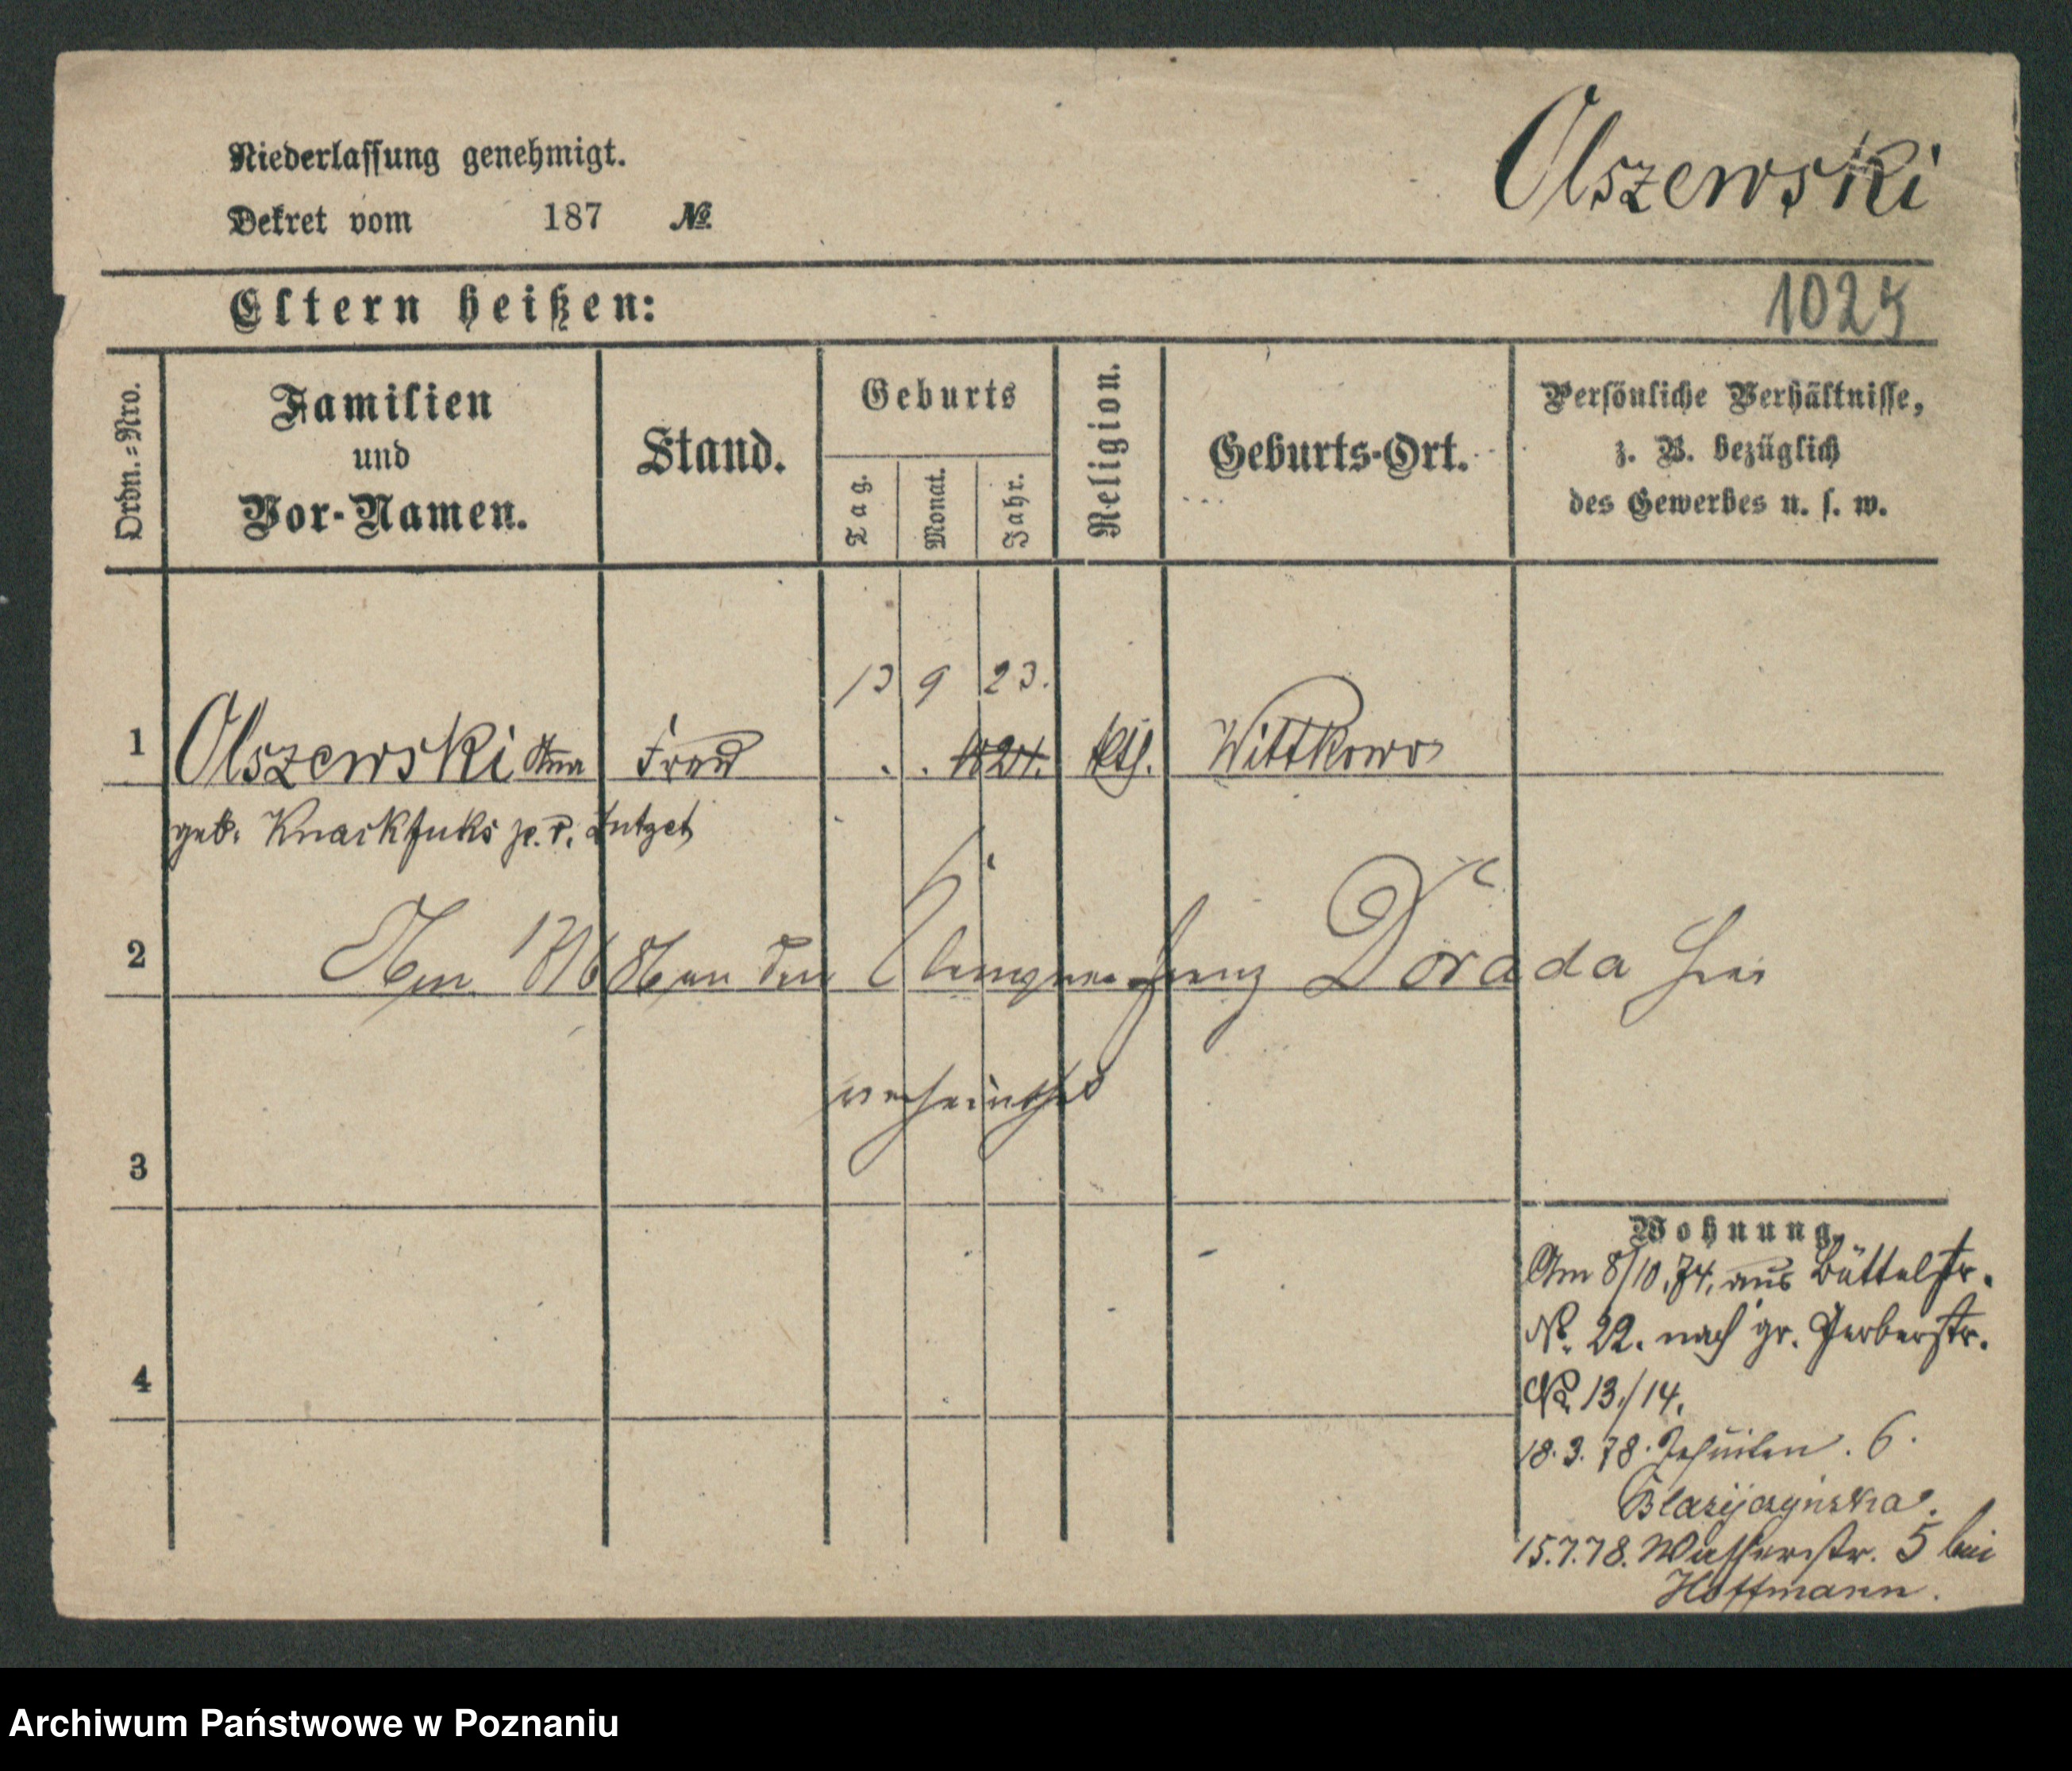 Niederlassung genehmigt.
Dekret vom 187 №
Olszewski
Eltern heißen:
1025
Ordn.=Nro.
Familien
und
Vor-Namen.
Stand.
Geburts
Tag.
Monat.
Jahr.
Religion.
Geburts-Ort.
Persönliche Verhältnisse,
z. B. bezüglich
des Gewerbes u. s. w.
13 9 23.
1 Olszewski Anna Frau 1824. kth. Wittkowo
geb. Knackfuks
2 Am 17/6 86 an den Klempner Franz Dorada hier
verheirathet
3
Wohnung.
Am 8/10.74. aus Büttelstr.
No. 22. nach gr. Gerberstr.
No. 13./14.
4
18.3.78. Jesuiten. 6.
15.7.78. Wasserstr. 5 bei
Hoffmann.
Archiwum Państwowe w Poznaniu